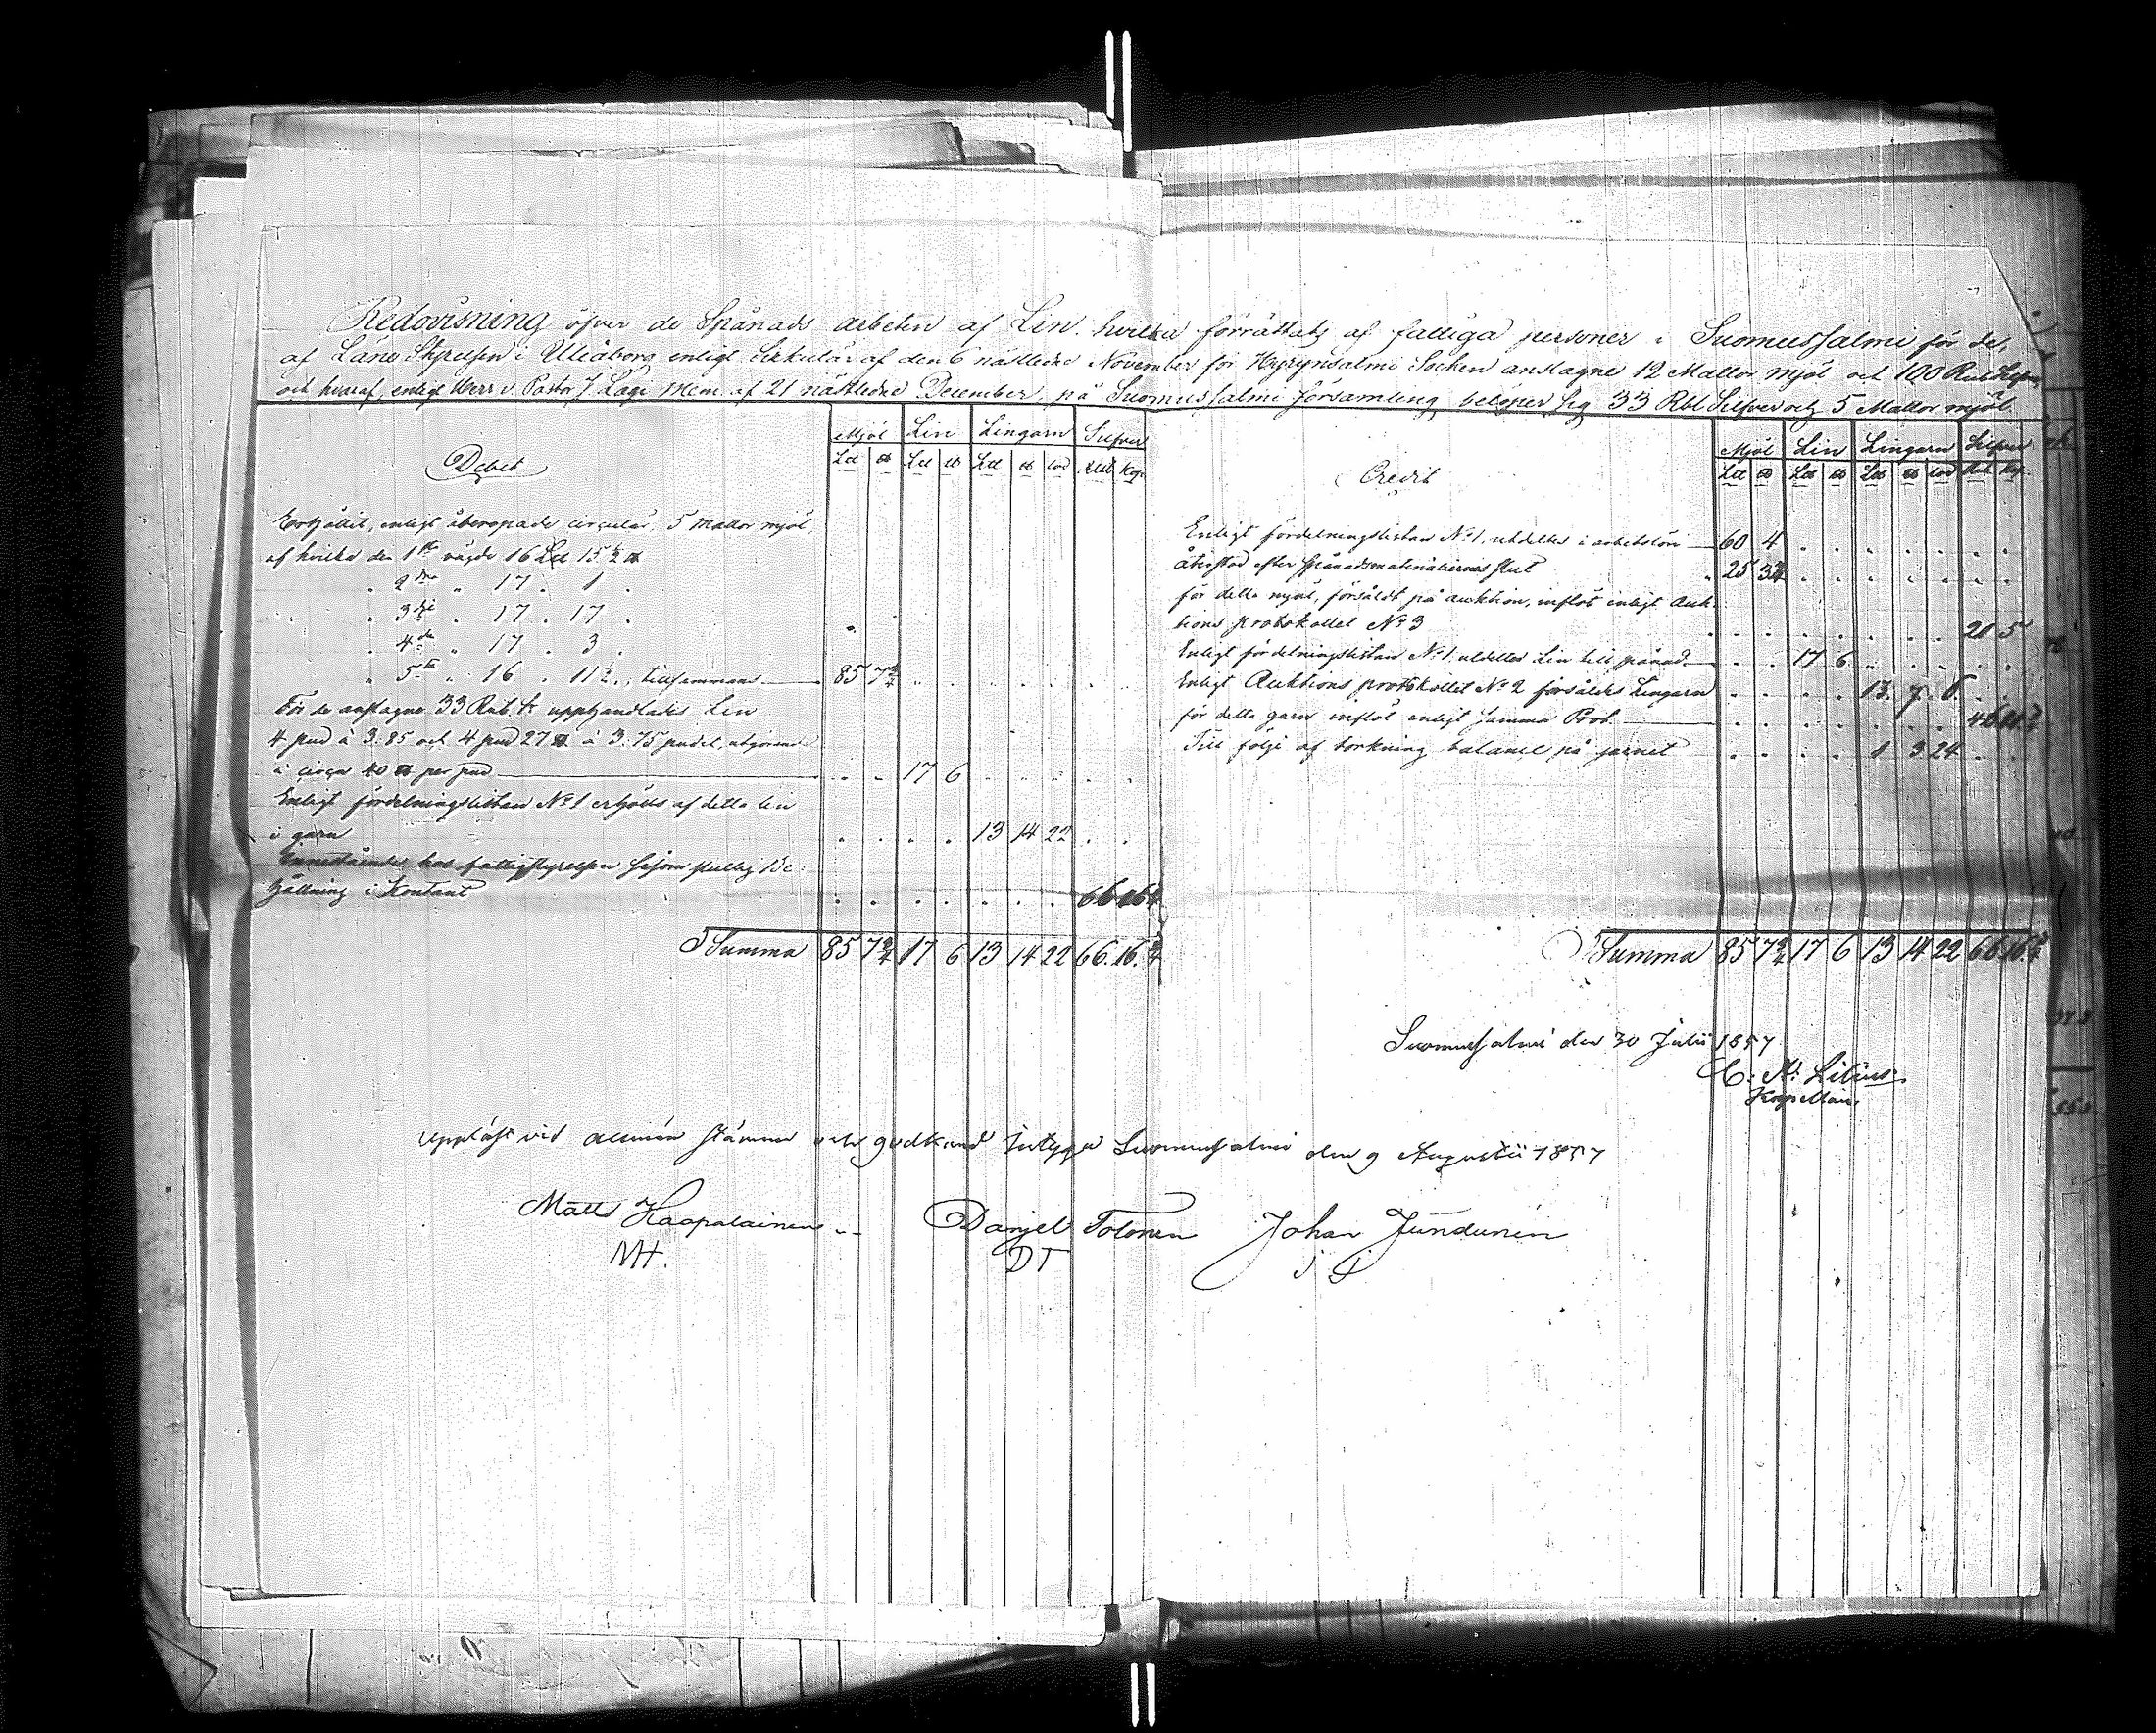 Redovisning öfver de Spånads arbeten af Lin, hvilka förrättats af fattiga personer i Suomussalmi för de,
af Läns Styrelsen i Uleåborg enligt Cirkulär af den 6 nästledne November för Hyrynsalmi Socken anslagne 12 Mattor mjöl och 100 Rub. Silfver,
och hvaraf, enligt Herr v. Pastor J. Lagi Mem. af 21 nästledne December, på Suomussalmi församling belöper sig 33 Rbl Silfver och 5 Mattor mjöl.
Debet
Mjöl Lin Lingarn Silfver
L℔ ℔ L℔ ℔ L℔ ℔ lod Rub. Kop.
Erhållit, enligt åberopade circulär, 5 mattor mjöl,
af hvilka den 1sta vägde 16 L℔ 15½ ℔
" 2dra " 17 " 1 "
" 3dje " 17 " 17 "
" 4de " 17 " 3 "
" 5te " 16 " 11¼ " tillsammans 85 7¾
För de anslagne 33 Rub. Sr upphandlades Lin
4 pud à 3.85 och 4 pud 27 ℔ à 3.75 pudet, utgörande
à circa 40 ℔ per pud 17 6
Enligt fördelningslistan No 1 erhölls af detta lin
i garn 13 14 22
Innestående hos fattigstyrelsen såsom skuldig Be-
hållning i Kontant 66 16¾
Summa 85 7¾ 17 6 13 14 22 66. 16.¾
Credit
Mjöl Lin Lingarn Silfver
L℔ ℔ L℔ ℔ L℔ ℔ lod Rub. Kop.
Enligt fördelningslistan No 1. utdeltes i arbetslön 60 4
Återstod efter spånadsmaterialiernas slut 25 3¾
för detta mjöl, försåldt på auktion, inflöt enligt Auk-
tions protokollet No 3 20 5
Enligt fördelningslistan No 1. utdeltes Lin till spånad 17 6
Enligt Auktions protokollet No 2 försåldes Lingarn 13 7
för detta garn inflöt enligt samma Prot. 46 11¾
Till följe af torkning balance på garnet
Summa 85 7¾ 17 6 13 14 22 66 16.¾
Suomussalmi den 30 Julii 1857
C. A. Lilius
Kapellan.
Uppläst vid allmän stämma och godkänd intyga Suomussalmi den 9 Augustii 1857
Matts Haapalainen Danjel Tolonen Johan Jundunen
MH. DT J J